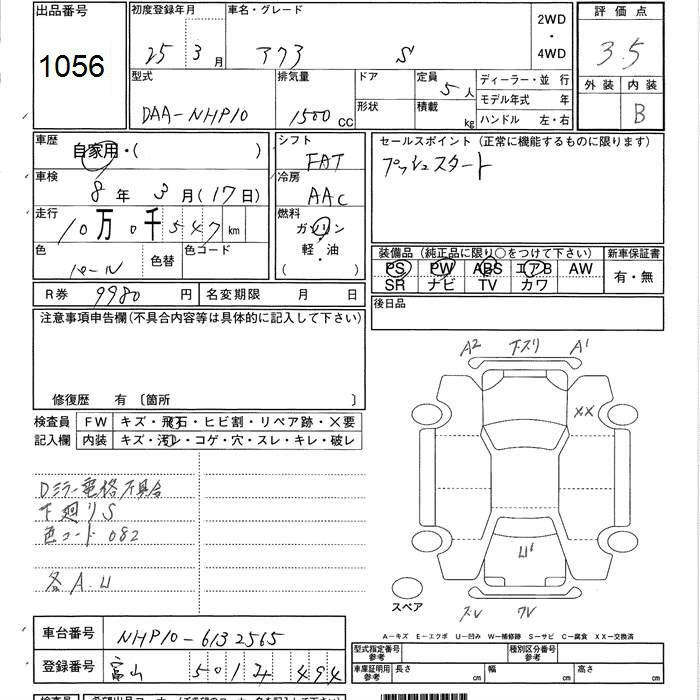 出品番号
1056
初度登録年月
25 3 月
車名・グレード
アクア S
2WD
・
4WD
評価点
3.5
外装 内装
B
型式
DAA-NHP10
排気量
1500 CC
ドア
形状
定員
5 人
積載
kg
ディーラー・並 行
モデル年式 年
ハンドル 左・右
車歴
自家用・( )
車検
8 年 3 月 (17 日)
走行
10 万 0 千 5 4 7 km
色
パール
色替
色コード
シフト
FAT
冷房
AAC
燃料
ガソリン
・
軽・油
( )
セールスポイント (正常に機能するものに限ります)
プッシュスタート
装備品 (純正品に限り○をつけて下さい)
PS PW ABS エアB AW
SR ナビ TV カワ
新車保証書
有・無
R券 9980 円
名変期限 月 日
後日品
注意事項申告欄(不具合内容等は具体的に記入して下さい)
修復歴 有 〔箇所 〕
検査員
記入欄
FW キズ・飛石・ヒビ割・リペア跡・×要
内装 キズ・汚レ・コゲ・穴・スレ・キレ・破レ
Dミラー電格不具合
下廻りS
色コード 082
各A.U
A2 下スリ A1
XX
U1
スペア
A-キズ E-エクボ U-凹み W-補修跡 S-サビ C-腐食 XX-交換済
車台番号
NHP10-6132565
登録番号
富山 501 す 494
型式指定番号
参考
種別区分番号
参考
車庫証明用
参考
長さ 幅 高さ